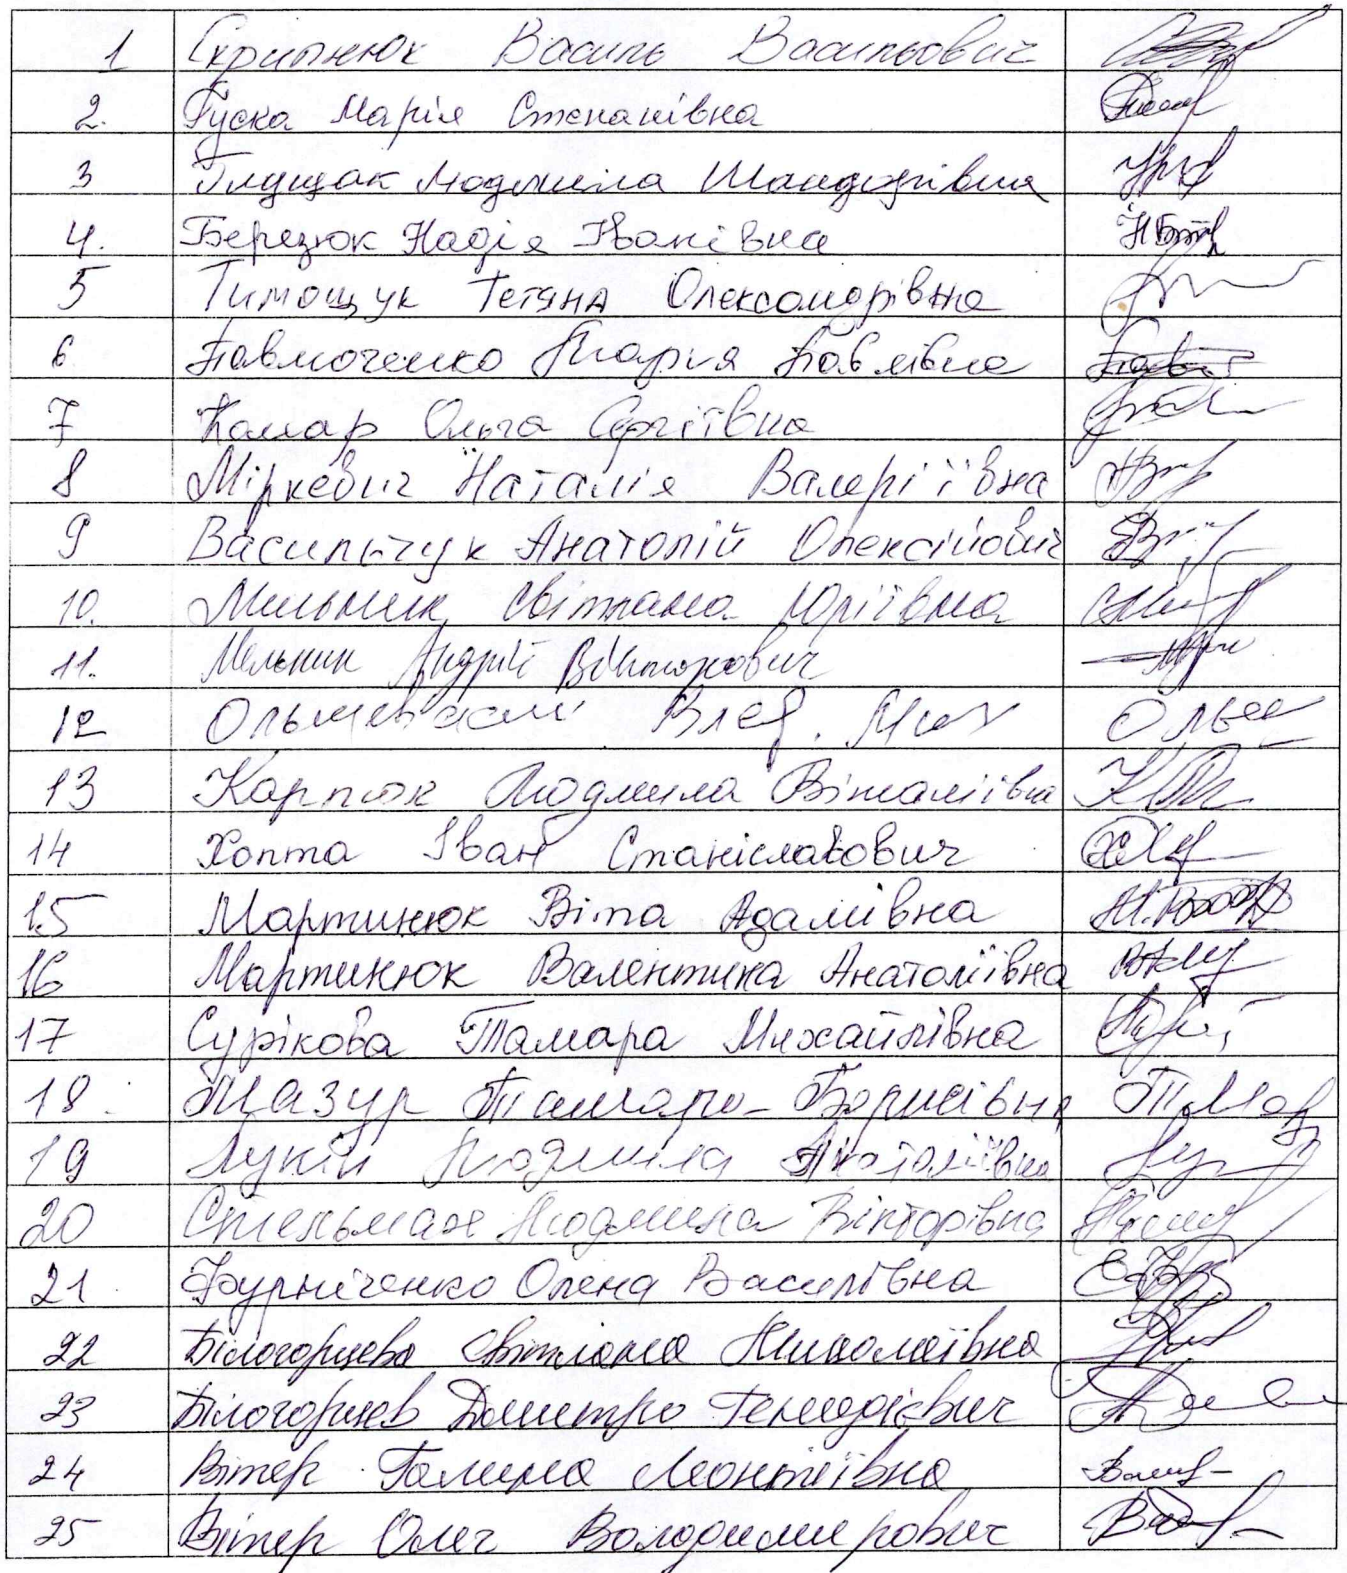 1 Скрипнюк Василь Васильович
2. Гуска Марія Степанівна
3 Глущак Людмила Шандорівна
4. Березюк Надія Іванівна
5 Тимощук Тетяна Олександрівна
6 Павлюченко Марія Павлівна
7 Комар Ольга Сергіївна
8 Міркевич Наталія Валеріївна
9 Васильчук Анатолій Олексійович
10. Мельник Світлана Юріївна
11. Мельник Андрій Вікторович
12
13 Карпюк Людмила Віталіївна
14 Хопта Іван Станіславович
15 Мартинюк Віта Адамівна
16 Мартинюк Валентина Анатоліївна
17 Сурікова Тамара Михайлівна
18. Мазур Тамара Борисівна
19 Людмила Анатоліївна
20 Стельмах Людмила Вікторівна
21 Фурніченко Олена Василівна
22 Білогорцева Світлана Миколаївна
23 Білогорцев Дмитро Генадієвич
24 Вітер Галина Леонтіївна
25 Вітер Олег Володимирович